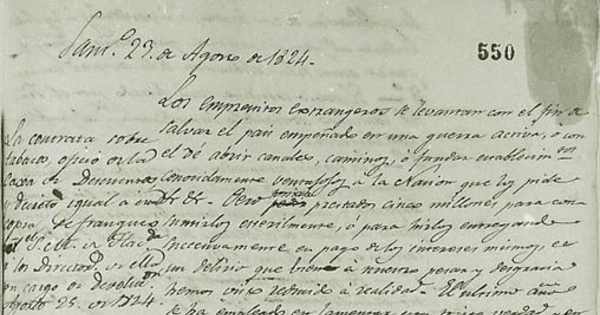 Sant.º 23 de Agosto de 1824.
550
Los emprestitos extrangeros se levantan con el fin de
salvar el pais empeñado en una guerra activa, o con
el de abrir canales, caminos, o fundar establecim.tos
conocidamente ventajosos a la Nacion que los pide
&r. &r. Pero prestados cinco millones para con-
sumirlos esterilmente, ó para hirlos entregando
succesivamente en pago de los intereses mismos, es
un delirio que bien à nuestro pesar y desgracia
hemos visto reducido à realidad. El ultimo año
se ha empleado en lamentar
La contrata sobre
tabacos, oficio de la
Descuentos
y decreto igual a
copia se franqueo
S.or Mtro. de Hac.da
i los Director.s de ella
en cargo de devoluc.on
Agosto 25. de 1824.